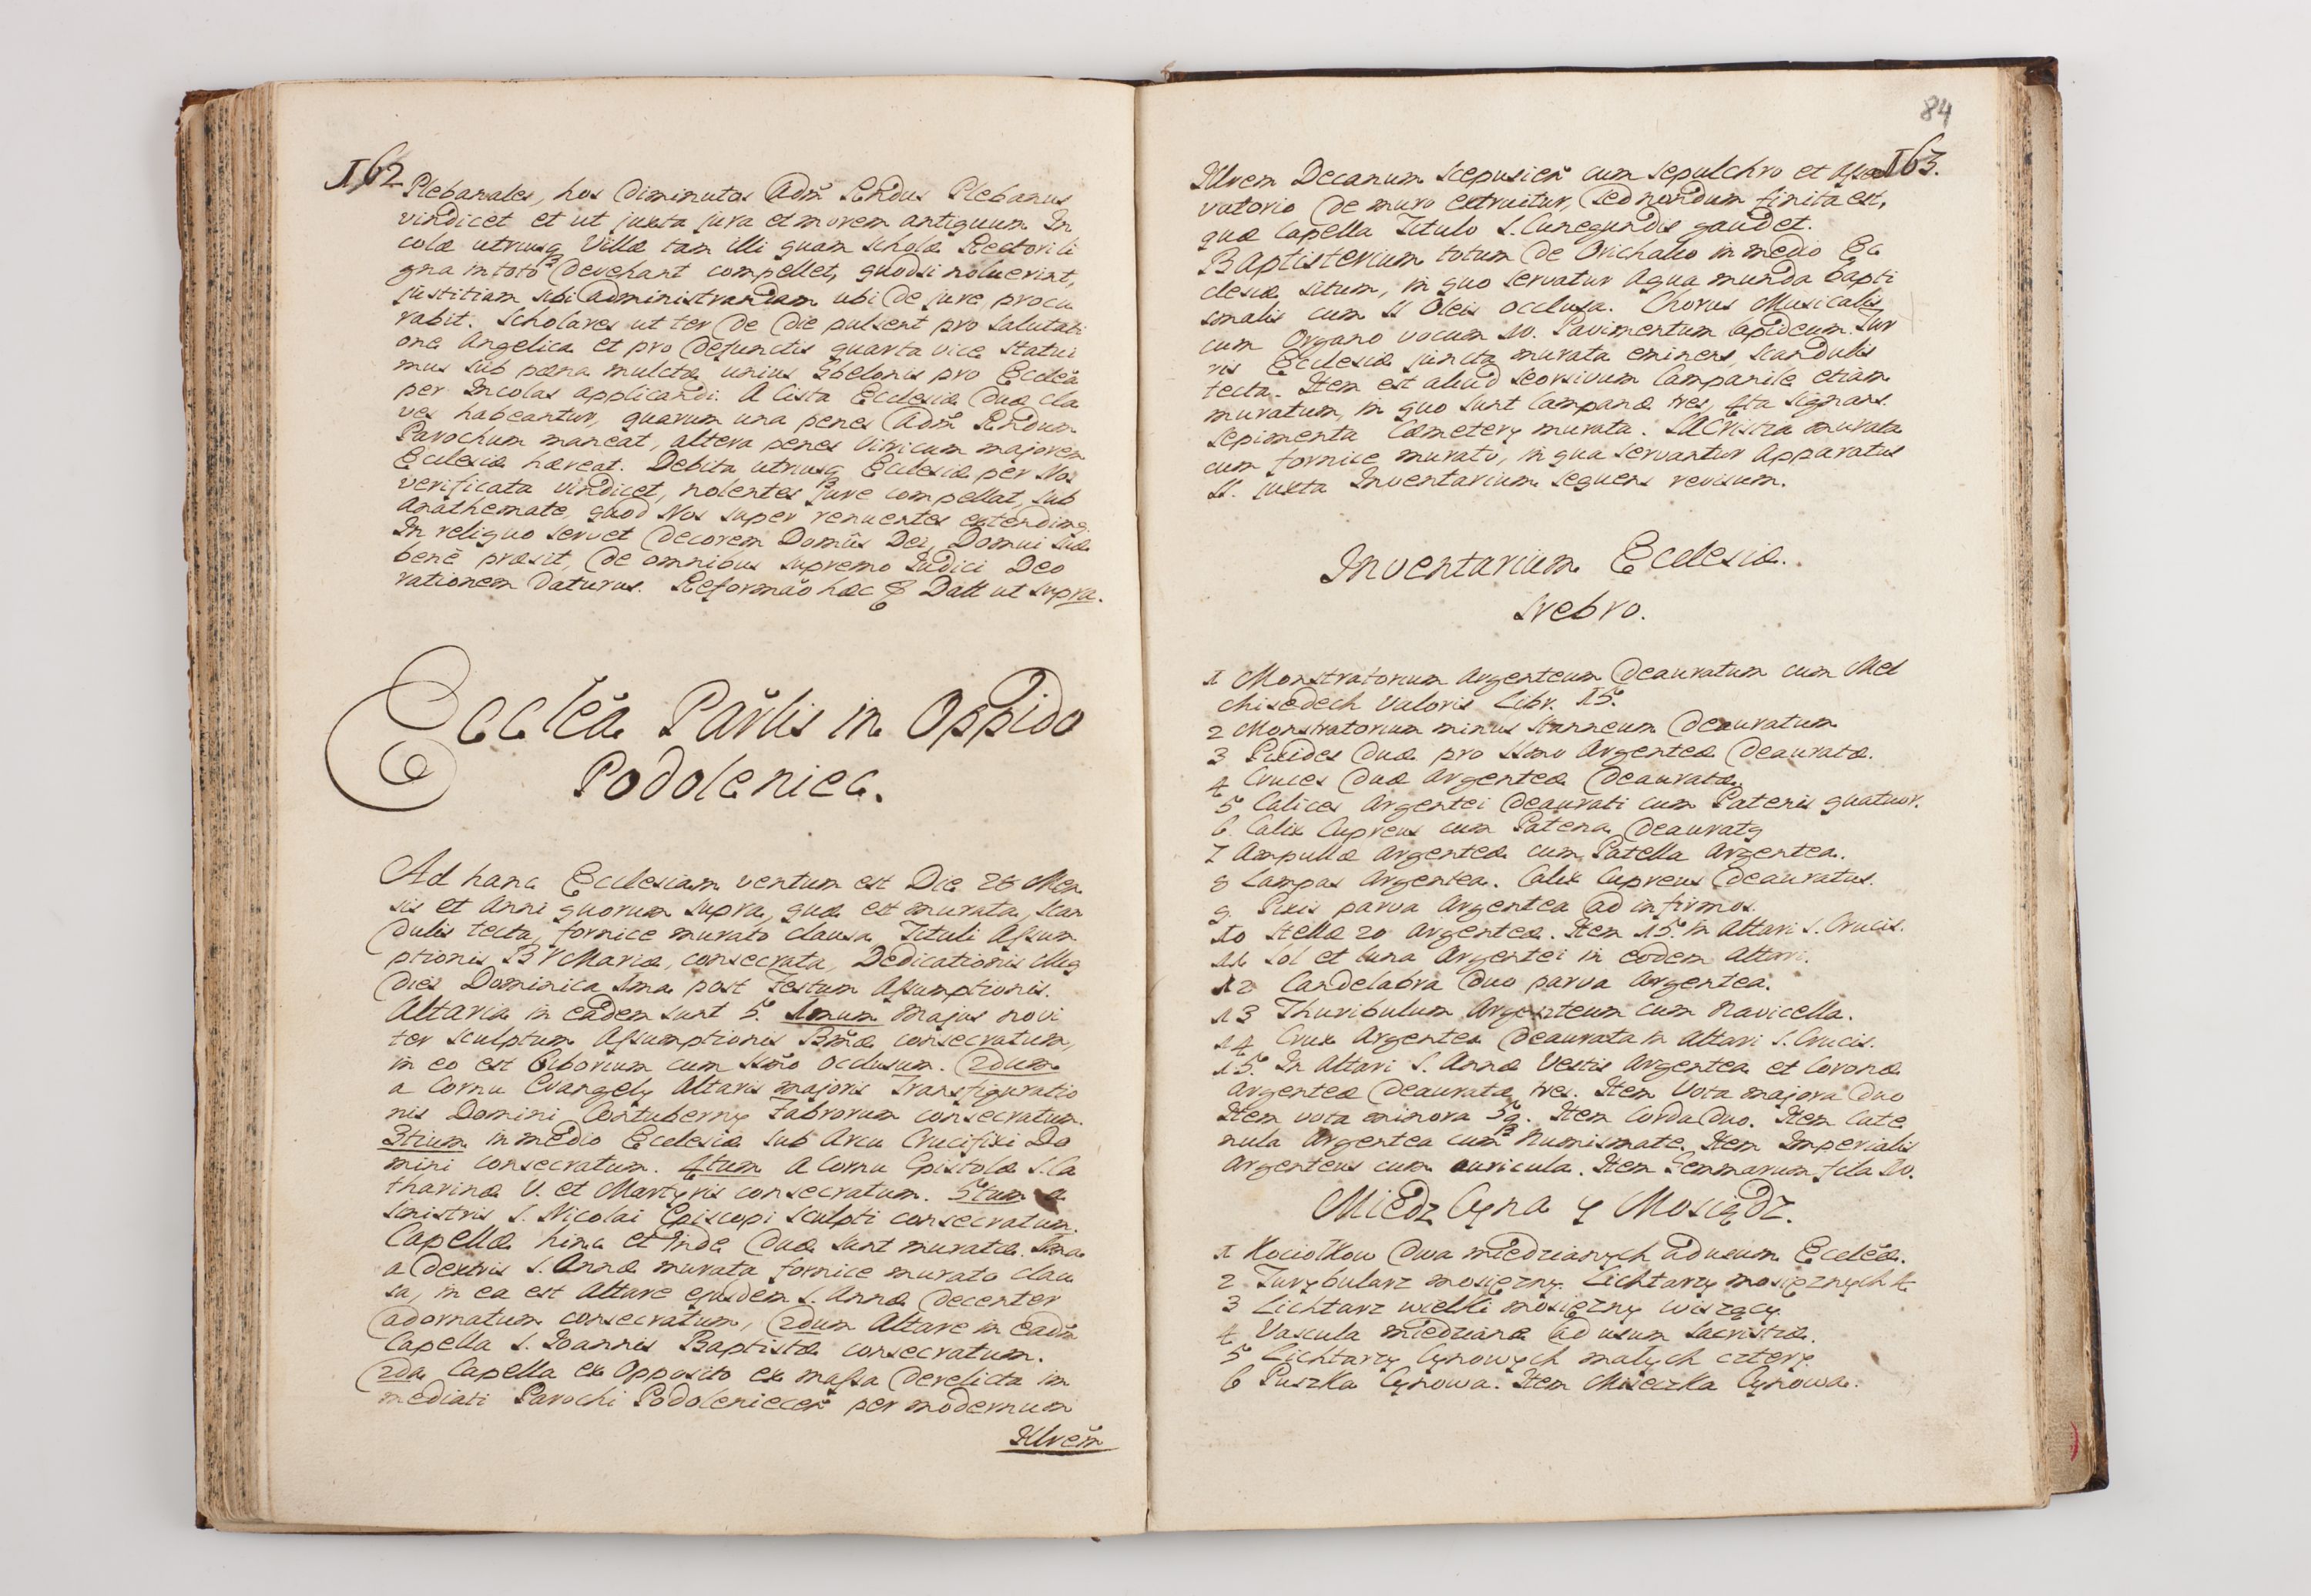 162
Plebanales, hos diminutos Adm̃ Rn̄dus Plebanus
vindicet et ut juxta jura et morem antiquum In
colæ utriusq Villæ tam illi quam Scholæ Rectori li
gna in toto devehant compellet, quodsi noluerint,
justitiam sibi administrandam ubi de jure procu
rabit. Scholares ut ter de die pulsent pro Salutati
one Angelica et pro defunctis quarta vice statui
mus sub pæna mulctæ unius Ebelonis pro Ecclẽa
per Incolas applicandi. A Cista Ecclesiæ duæ cla
ves habeantur, quarum una penes Adm̃ Rn̄dum
Parochum maneat, altera penes Vitricum majorem
Ecclesiæ hæreat. Debita utriusq Ecclesiæ per Nos
verificata vindicet, nolentes jure compellat, sub
Anathemate, quod Nos super renuentes extendimq.
In reliquo servet decorem Domûs Dei, Domui suæ
benè præsit, de omnibus supremo Judici Deo
rationem daturus. Reformão hæc & Datt ut supra.
Ecclẽa Par̃lis in Oppido
Podoleniec.
Ad hanc Ecclesiam ventum est Die 26 Men
sis et Anni quorum supra, quæ est murata, scan
dulis tecta, fornice murato clausa Tituli Assum
ptionis B V Mariæ, consecrata, Dedicationis illiq
dies Dominica 1ma post Festum Assumptionis.
Altaria in eâdem sunt 5. 1mum majus novi
ter sculptum Assumptionis Bm̃æ consecratum,
in eo est Ciborium cum SSm̃o occlusum. 2dum
a Cornu Evangelij Altaris majoris Transfiguratio
nis Domini Contubernij Fabrorum consecratum.
3tium in medio Ecclesiæ sub Arcu Crucifixi Do
mini consecratum. 4tum a Cornu Epistolæ S. Ca
tharinæ V. et Martyris consecratum. 5tum a
sinistris S. Nicolai Episcopi sculpti consecratum.
Capellæ hinc et inde duæ sunt muratæ. 1ma
a dextris S. Annæ murata fornice murato clau
sa, in ea est Altare ejusdem S. Annæ decenter
adornatum consecratum, 2dum Altare in eadm̃
Capella S. Joannis Baptistæ consecratum.
2da Capella ex opposito ex massa derelicta im
mediati Parochi Podoleniecen̄ per modernum
Illrem̃
84
163.
Illrem Decanum Scepusien̄ cum sepulchro et Asser
vatorio de muro extruitur, sed nondum finita est,
quæ Capella Titulo S. Cunegundis gaudet.
Baptisterium totum de Orichalco in medio Ec
clesiæ situm, in quo servatur aqua munda bapti
smalis cum SS Oleis occlusa. Chorus Musicalis
cum Organo vocum 10. Pavimentum lapideum. Tur
ris Ecclesiæ juncta murata eminens, scandulis
tecta. Item est aliud seorsivum Campanile etiam
muratum, in quo sunt Campanæ tres, 4ta signans.
Sepimenta Cæmeterij murata. Sacristia murata
cum fornice murato, in qua servantur Apparatus
SS. juxta Inventarium sequens revisum.
Inventarium Ecclesiæ.
Srebro.
1 Monstratorium Argenteum deauratum cum Mel
chisedech valoris Libr. 15.
2 Monstratorium minus Stanneum deauratum
3 Pixides duæ pro SSmo Argenteæ deauratæ.
4 Cruces duæ Argenteæ deauratæ.
5 Calices Argentei deaurati cum Patenis quatuor.
6. Calix Cupreus cum Patena deauratq
7 Ampullæ Argenteæ cum Patella Argentea.
8 Lampas Argentea. Calix Cupreus deauratus.
9. Pixis parva Argentea ad infirmos.
10 Stellæ 20 Argenteæ. Item 15. in Altari S. Crucis.
11 Sol et luna Argentei in eodem Altari.
12 Candelabra duo parva Argentea.
13 Thuribulum Argenteum cum Navicella.
14 Crux Argentea deaurata in Altari S. Crucis.
15. In Altari S. Annæ Vestis Argentea et Coronæ
Argenteæ deauratæ tres. Item Vota majora duo
Item vota minora 59. Item Corda duo. Item Cate
nula Argentea cum Numismate. Item Imperialis
Argenteus cum auricula. Item Gemmarum fila 10.
Miedz Cyna y Mosiądz.
1 Kociołkow dwa miedzianych ad usum Ecclẽæ.
2 Turybularz mosięzny. Lichtarzy mosięznych 4.
3 Lichtarz wielki mosięzny wiszący.
4 Vascula miedzianæ ad usum Sacristiæ.
5 Lichtarzy Cynowych małych cztery.
6 Puszka Cynowa. Item Miseczka Cynowa.